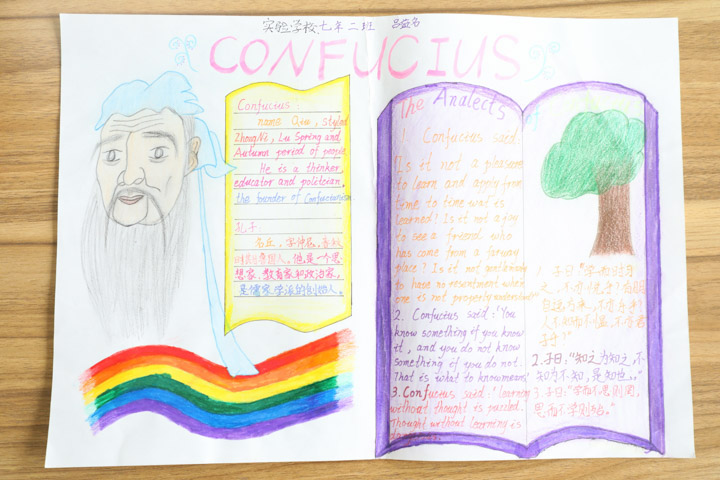 实验学校七年二班
CONFUCIUS
Confucius:
name Qiu, styled
ZhongNi, Lu Spring and
Autumn period of people.
He is a thinker,
educator and politcian,
the founder of Confucianism.
孔子
名丘，字仲尼，春秋
时期鲁国人。他是一个思
想家、教育家和政治家，
是儒家学派的创始人。
The Analects
1. Confucius said:
Is it not a pleasure
to learn and apply from
time to time what is
learned? Is it not a joy
to see a friend who
has come from a faraway
place? Is it not gentleman
to have no resentment when
one is not properly understood
2. Confucius said: "You
know something if you know
it, and you do not know
something if you do not.
That is what to know means.
3. Confucius said: "learning
without thought is puzzled.
Thought without learning is
1. 子曰：“学而时习
之，不亦说乎？有朋
自远方来，不亦乐乎？
人不知而不愠，不亦君
子乎？”
2. 子曰：“知之为知之，不
知为不知，是知也。”
3. 子曰：“学而不思则罔，
思而不学则殆。”